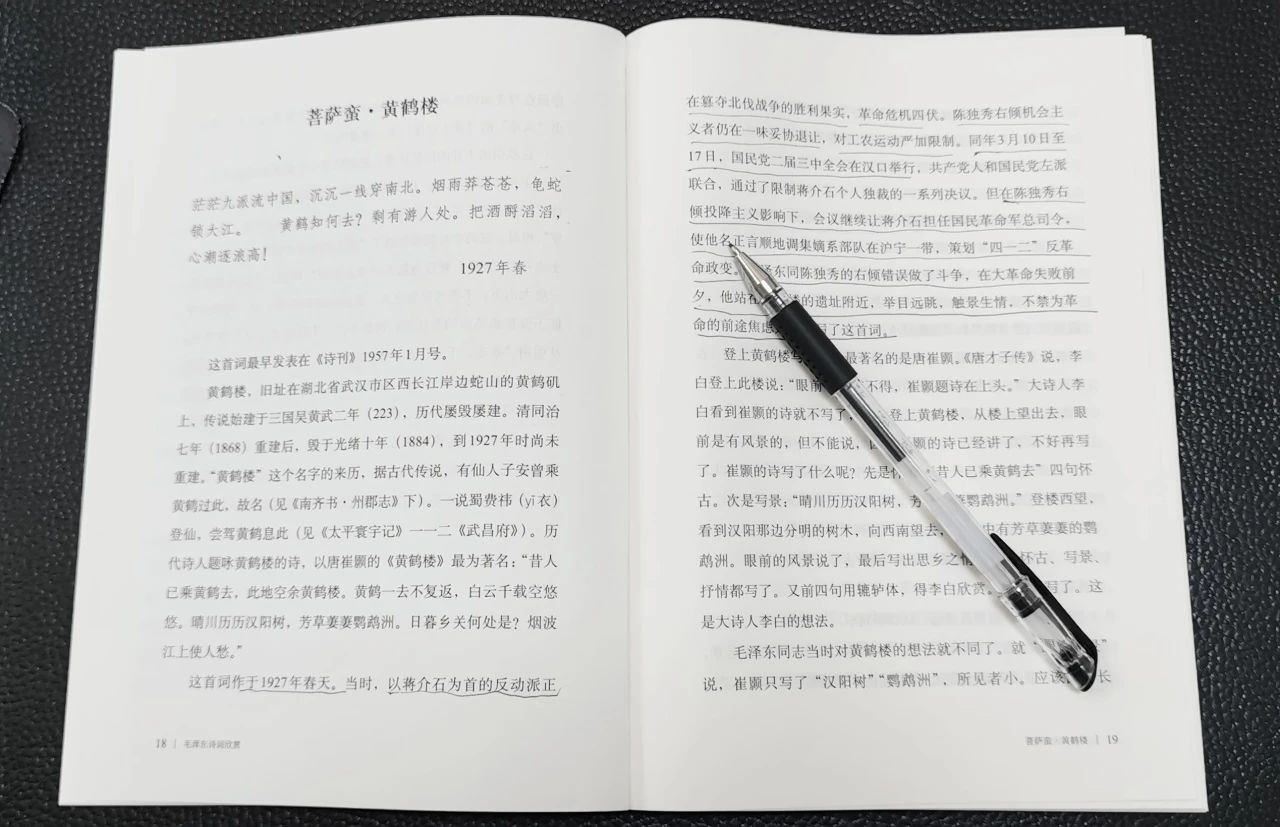 菩萨蛮·黄鹤楼
茫茫九派流中国，沉沉一线穿南北。烟雨莽苍苍，龟蛇
锁大江。 黄鹤知何去？剩有游人处。把酒酹滔滔，
心潮逐浪高！
1927年春
这首词最早发表在《诗刊》1957年1月号。
黄鹤楼，旧址在湖北省武汉市区西长江岸边蛇山的黄鹤矶
上，传说始建于三国吴黄武二年（223），历代屡毁屡建。清同治
七年（1868）重建后，毁于光绪十年（1884），到1927年时尚未
重建。“黄鹤楼”这个名字的来历，据古代传说，有仙人子安曾乘
黄鹤过此，故名（见《南齐书·州郡志》下）。一说蜀费祎（yī衣）
登仙，尝驾黄鹤息此（见《太平寰宇记》一一二《武昌府》）。历
代诗人题咏黄鹤楼的诗，以唐崔颢的《黄鹤楼》最为著名：“昔人
已乘黄鹤去，此地空余黄鹤楼。黄鹤一去不复返，白云千载空悠
悠。晴川历历汉阳树，芳草萋萋鹦鹉洲。日暮乡关何处是？烟波
江上使人愁。”
这首词作于1927年春天。当时，以蒋介石为首的反动派正
18 | 毛泽东诗词欣赏
在篡夺北伐战争的胜利果实，革命危机四伏。陈独秀右倾机会主
义者仍在一味妥协退让，对工农运动严加限制。同年3月10日至
17日，国民党二届三中全会在汉口举行，共产党人和国民党左派
联合，通过了限制蒋介石个人独裁的一系列决议。但在陈独秀右
倾投降主义影响下，会议继续让蒋介石担任国民革命军总司令，
使他名正言顺地调集嫡系部队在沪宁一带，策划“四一二”反革
命政变。泽东同陈独秀的右倾错误做了斗争，在大革命失败前
夕，他站在楼的遗址附近，举目远眺，触景生情，不禁为革
命的前途焦虑了这首词。
登上黄鹤楼最著名的是唐崔颢。《唐才子传》说，李
白登上此楼说：“眼前不得，崔颢题诗在上头。”大诗人李
白看到崔颢的诗就不写了，登上黄鹤楼，从楼上望出去，眼
前是有风景的，但不能说，颢的诗已经讲了，不好再写
了。崔颢的诗写了什么呢？先是“昔人已乘黄鹤去”四句怀
古。次是写景：“晴川历历汉阳树，芳萋鹦鹉洲。”登楼西望，
看到汉阳那边分明的树木，向西南望去，中有芳草萋萋的鹦
鹉洲。眼前的风景说了，最后写出思乡之情怀古、写景、
抒情都写了。又前四句用辘轳体，得李白欣赏。写了。这
是大诗人李白的想法。
毛泽东同志当时对黄鹤楼的想法就不同了。就
说，崔颢只写了“汉阳树”“鹦鹉洲”，所见者小。应该长
菩萨蛮·黄鹤楼 | 19